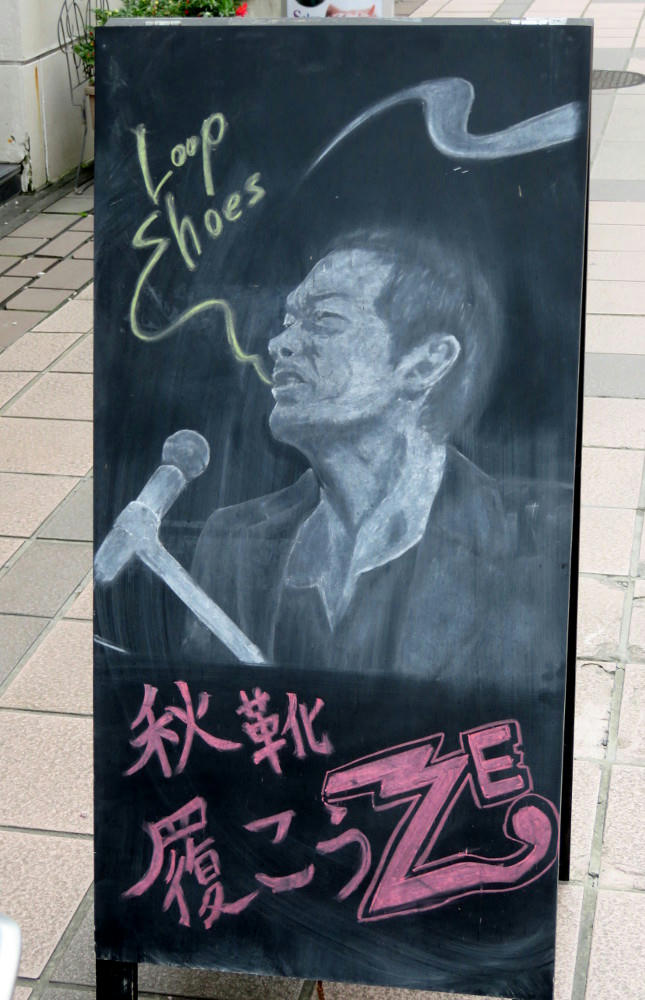 Loop
Shoes
秋靴
履こうZE